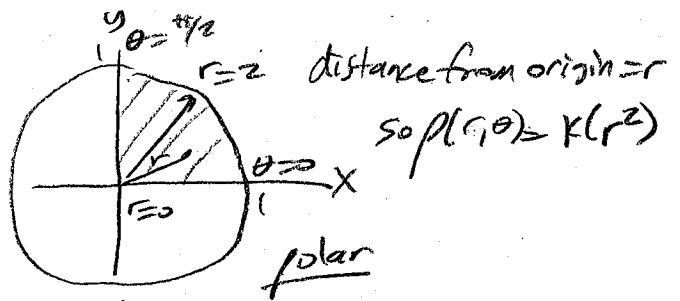 y
θ=π/2
1
r=2
distance from origin=r
so ρ(r,θ)= K(r²)
r
θ=0
X
r=0
1
polar